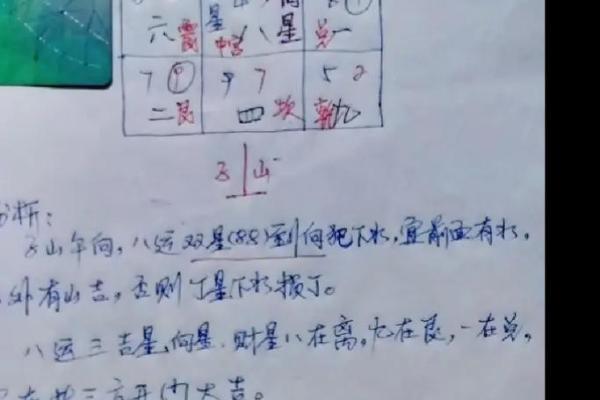 星 向
六 震 中宫 八 星 兑 一
7 9 9 7 5 2
二 艮 四 坎 乾 九
子 山
分析:
子山午向,八运双星(88)到向犯下水,宜前面有水,
外有山吉,否则丁星下水损丁。
八运三吉星,向星、财星八在离,九在艮,一在兑,
在此三方开门大吉。